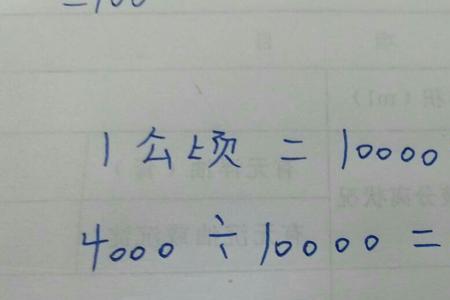 =100
1公顷 = 10000
4000 ÷ 10000 =